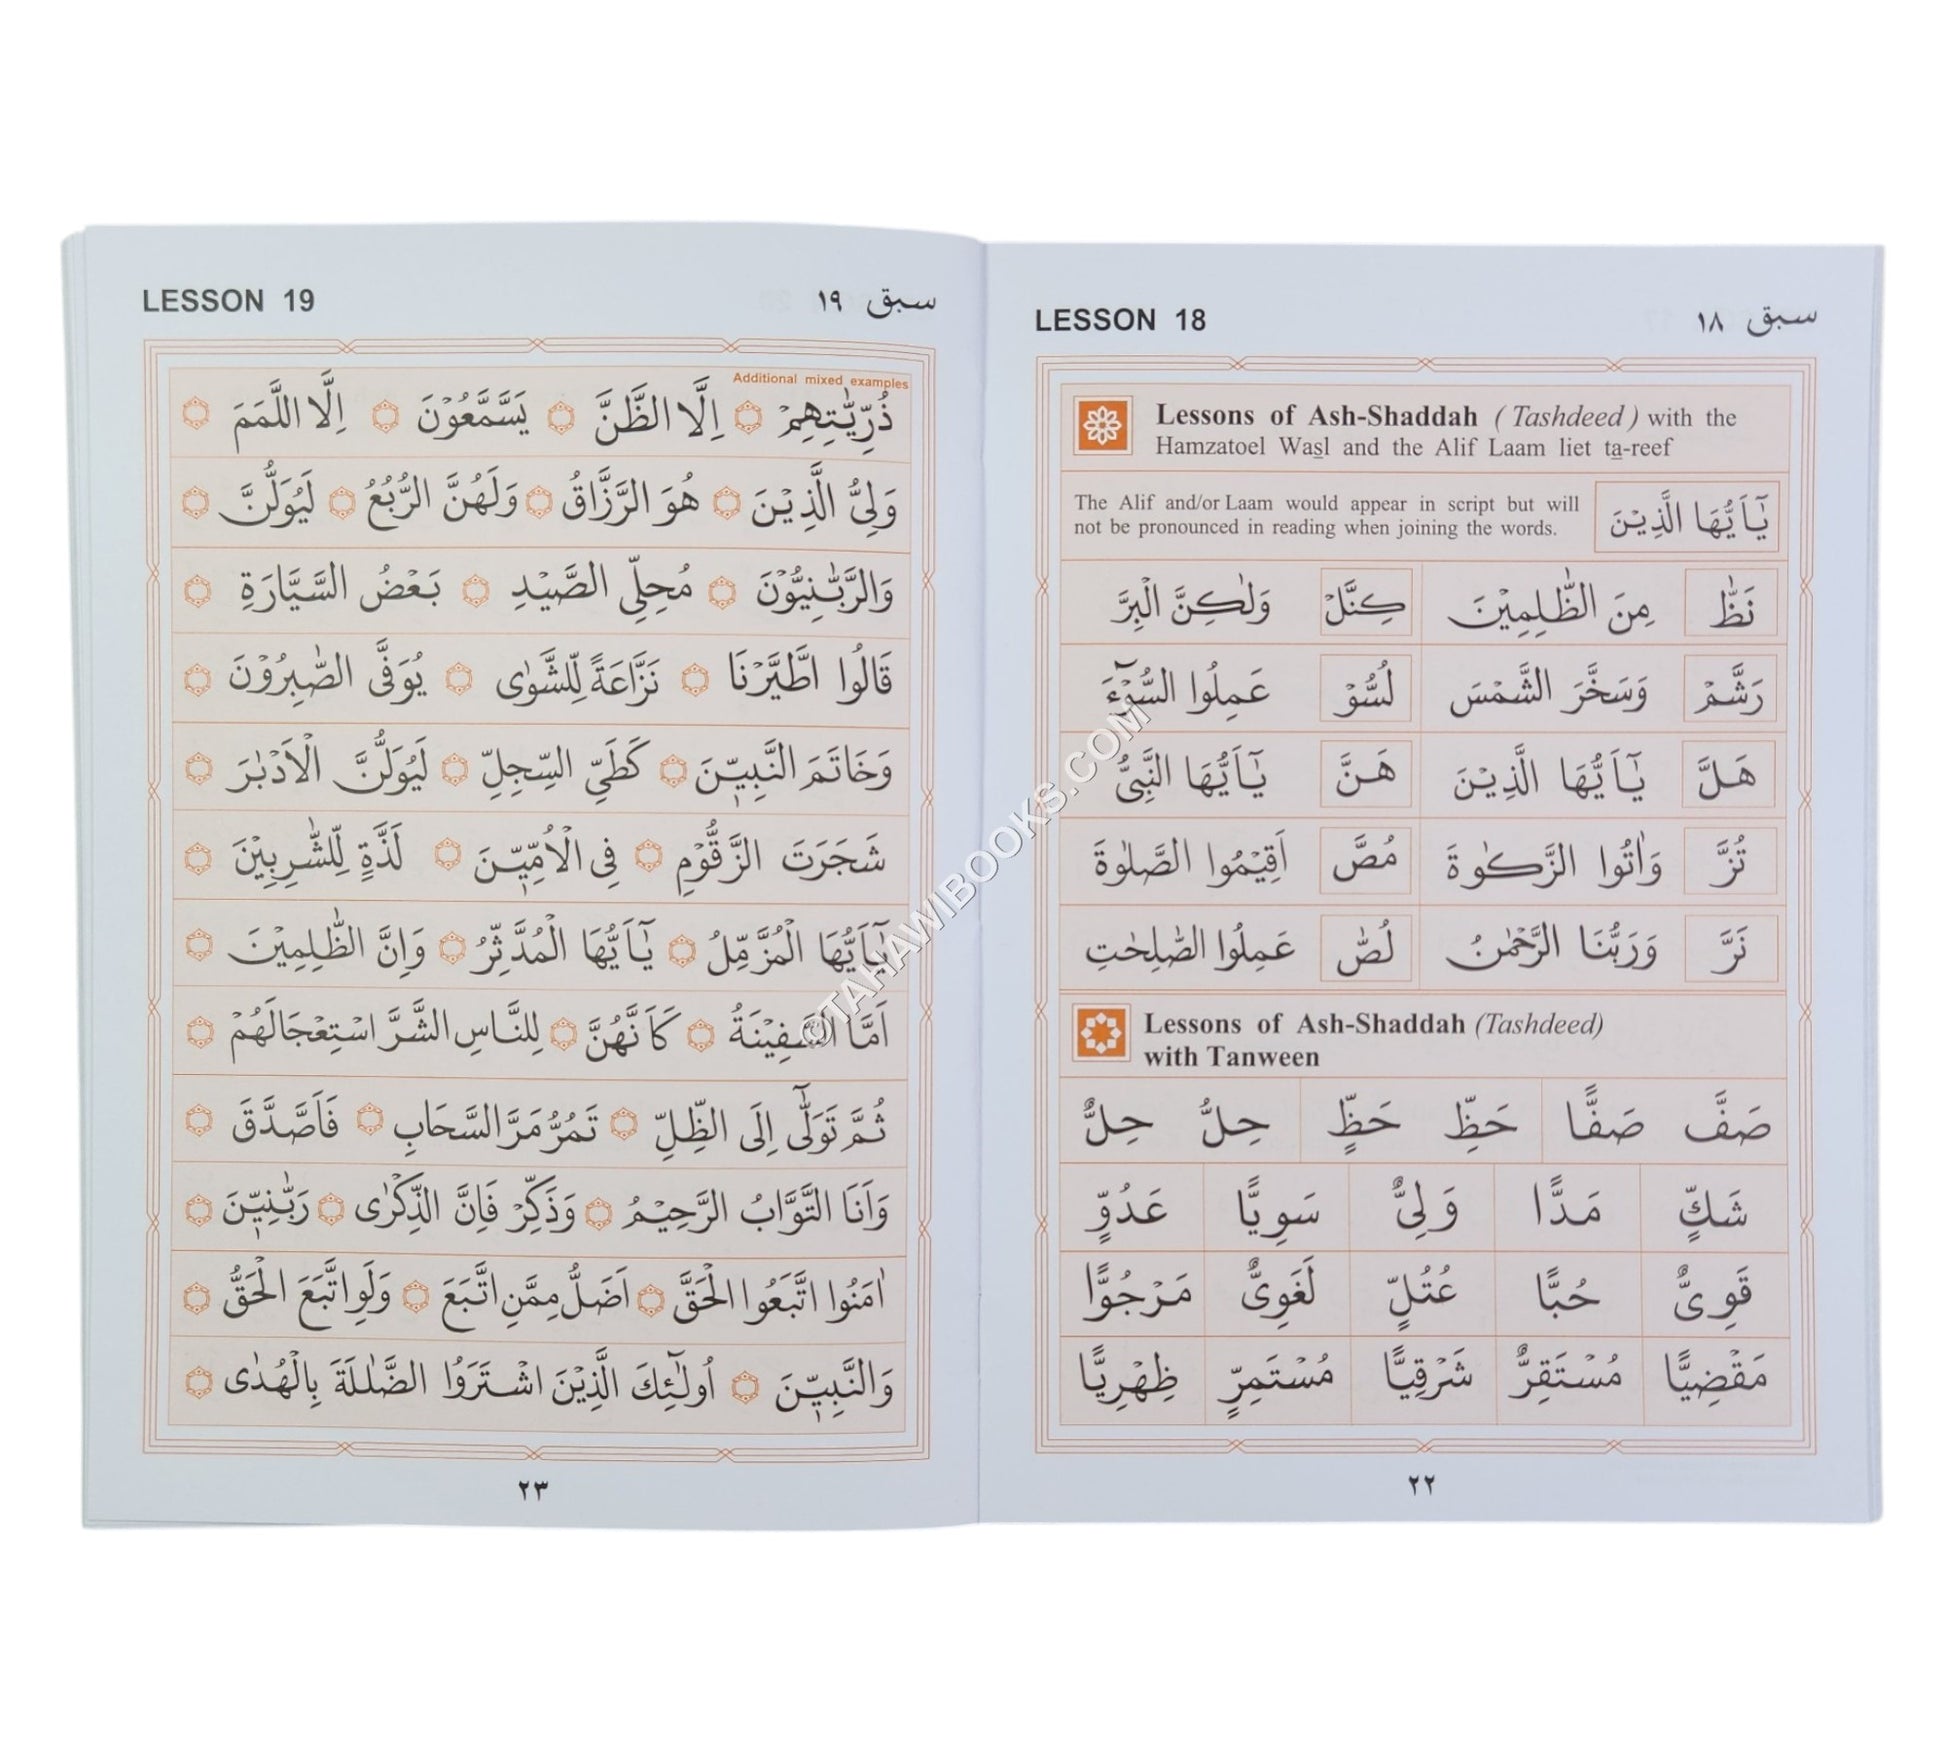 LESSON 18 سبق ١٨
Lessons of Ash-Shaddah (Tashdeed) with the
Hamzatoel Wasl and the Alif Laam liet ta-reef
The Alif and/or Laam would appear in script but will
not be pronounced in reading when joining the words.
يٰۤاَيُّهَا الَّذِيْنَ
نَظّٰ مِنَ الظّٰلِمِيْنَ كِنَّلْ وَلٰكِنَّ الْبِرَّ
رَشَّمْ وَسَخَّرَ الشَّمْسَ لُسُّوْ عَمِلُوا السُّوْٓءَ
هَلَّ يٰۤاَيُّهَا الَّذِيْنَ هَنَّ يٰۤاَيُّهَا النَّبِىُّ
تُزَّ وَاٰتُوا الزَّكٰوةَ مُصَّ اَقِيْمُوا الصَّلٰوةَ
نَرَّ وَرَبُّنَا الرَّحْمٰنُ لُصّٰ عَمِلُوا الصّٰلِحٰتِ
Lessons of Ash-Shaddah (Tashdeed)
with Tanween
صَفَّ صَفًّا حَظِّ حَظٍّ حِلُّ حِلٌّ
شَكٍّ مَدًّا وَلِىٌّ سَوِيًّا عَدُوٍّ
قَوِىٌّ حُبًّا عُتُلٍّ لَغَوِىٌّ مَرْجُوًّا
مَقْضِيًّا مُسْتَقِرٌّ شَرْقِيًّا مُسْتَمِرٍّ ظِهْرِيًّا
٢٢
LESSON 19 سبق ١٩
Additional mixed examples
ذُرِّيّٰتِهِمْ اِلَّا الظَّنَّ يَسَّمَّعُوْنَ اِلَّا اللَّمَمَ
وَلِىُّ الَّذِيْنَ هُوَ الرَّزَّاقُ وَلَهُنَّ الرُّبُعُ لَيُوَلُّنَّ
وَالرَّبّٰنِيُّوْنَ مُحِلِّى الصَّيْدِ بَعْضُ السَّيَّارَةِ
قَالُوا اطَّيَّرْنَا نَزَّاعَةً لِّلشَّوٰى يُوَفَّى الصّٰبِرُوْنَ
وَخَاتَمَ النَّبِيّٖنَ كَطَيِّ السِّجِلِّ لَيُوَلُّنَّ الْاَدْبٰرَ
شَجَرَتَ الزَّقُّوْمِ فِى الْاُمِّيّٖنَ لَذَّةٍ لِّلشّٰرِبِيْنَ
يٰۤاَيُّهَا الْمُزَّمِّلُ يٰۤاَيُّهَا الْمُدَّثِّرُ وَاِنَّ الظّٰلِمِيْنَ
اَمَّا السَّفِيْنَةُ كَاَنَّهُنَّ لِلنَّاسِ الشَّرَّ اسْتِعْجَالَهُمْ
ثُمَّ تَوَلّٰٓى اِلَى الظِّلِّ تَمُرُّ مَرَّ السَّحَابِ فَاَصَّدَّقَ
وَاَنَا التَّوَّابُ الرَّحِيْمُ وَذَكِّرْ فَاِنَّ الذِّكْرٰى رَبّٰنِيّٖنَ
اٰمَنُوا اتَّبَعُوا الْحَقَّ اَضَلُّ مِمَّنِ اتَّبَعَ وَلَوِ اتَّبَعَ الْحَقُّ
وَالنَّبِيّٖنَ اُولٰٓئِكَ الَّذِيْنَ اشْتَرَوُا الضَّلٰلَةَ بِالْهُدٰى
٢٣
©TAHAWIBOOKS.COM